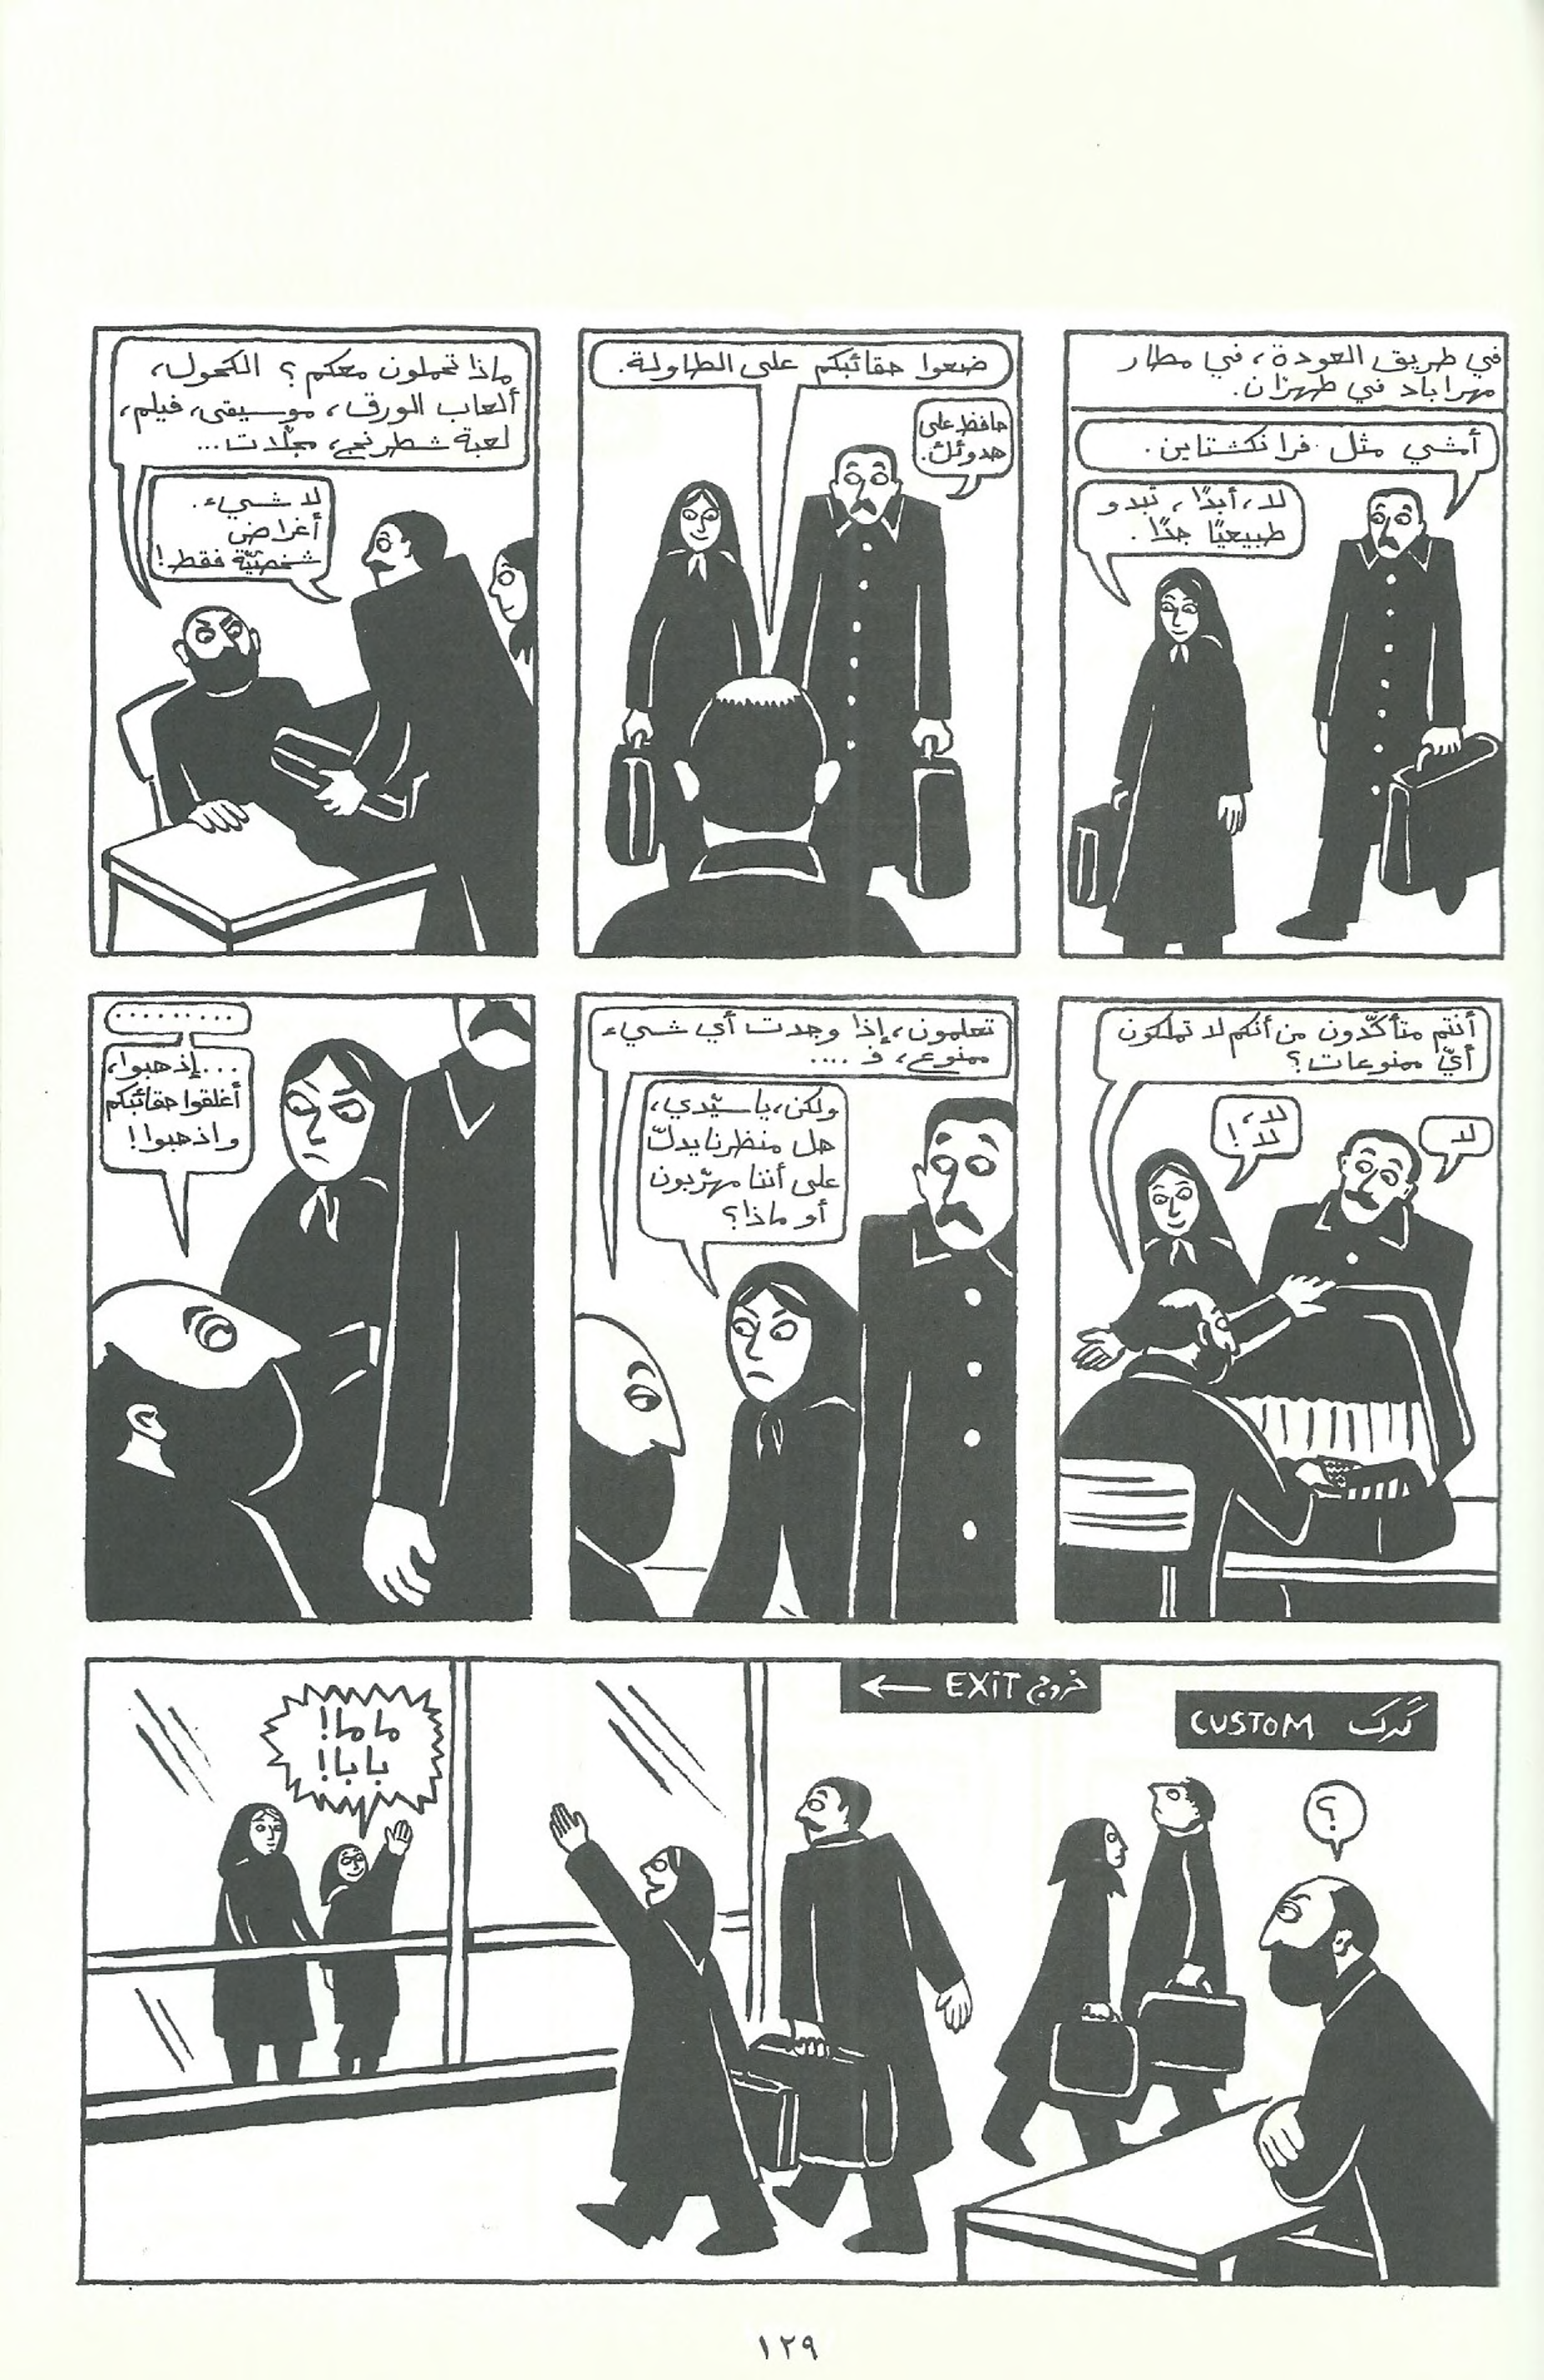 في طريق العودة، في مطار
مهراباد في طهران.
أمشي مثل فرانكشتاين.
لا، أبدًا، تبدو
طبيعيًا جدًا.
ضعوا حقائبكم على الطاولة.
حافظ على
هدوئك.
ماذا تحملون معكم؟ الكحول،
ألعاب الورق، موسيقى، فيلم،
لعبة شطرنج، مجلّات...
لا شيء.
أغراض
شخصيّة فقط!
أنتم متأكّدون من أنكم لا تملكون
أيّ ممنوعات؟
لا
لا،
لا!
تعلمون، إذا وجدت أي شيء
ممنوع، فـ ....
ولكن، يا سيّدي،
هل منظرنا يدلّ
على أننا مهرّبون
أو ماذا؟
.........
...إذهبوا،
أغلقوا حقائبكم
واذهبوا!
گمرک CUSTOM
خروج EXIT ←
؟
ماما!
بابا!
١٢٩